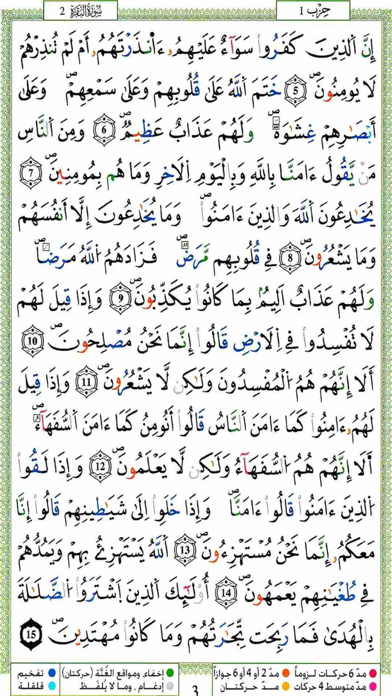 حِزْب 1
سُورَةُ البَقَرَة 2
إِنَّ اَ۬لذِينَ كَفَرُواْ سَوَآءٌ عَلَيْهِمُۥٓ ءَآنذَرْتَهُمُۥٓ أَمْ لَمْ تُنذِرْهُمْ
لَا يُومِنُونَۖ 5 خَتَمَ اَ۬للَّهُ عَلَىٰ قُلُوبِهِمْ وَعَلَىٰ سَمْعِهِمْۖ وَعَلَىٰ
أَبْصَٰرِهِمْ غِشَٰوَةٞۖ وَلَهُمْ عَذَابٌ عَظِيمٞۖ 6 وَمِنَ اَ۬لنَّاسِ
مَنْ يَّقُولُ ءَامَنَّا بِاللَّهِ وَبِالْيَوْمِ اِ۬لَاخِرِ وَمَا هُم بِمُومِنِينَۖ 7
يُخَٰدِعُونَ اَ۬للَّهَ وَالذِينَ ءَامَنُواْۖ وَمَا يُخَٰدِعُونَ إِلَّآ أَنفُسَهُمْ
وَمَا يَشْعُرُونَۖ 8 فِي قُلُوبِهِم مَّرَضٞۖ فَزَادَهُمُ اُ۬للَّهُ مَرَضاٗۖ
وَلَهُمْ عَذَابٌ أَلِيمُۢ بِمَا كَانُواْ يُكَذِّبُونَۖ 9 وَإِذَا قِيلَ لَهُمْ
لَا تُفْسِدُواْ فِي اِ۬لَارْضِ قَالُوٓاْ إِنَّمَا نَحْنُ مُصْلِحُونَۖ 10
أَلَآ إِنَّهُمْ هُمُ اُ۬لْمُفْسِدُونَ وَلَٰكِن لَّا يَشْعُرُونَۖ 11 وَإِذَا قِيلَ
لَهُمُۥٓ ءَامِنُواْ كَمَآ ءَامَنَ اَ۬لنَّاسُ قَالُوٓاْ أَنُومِنُ كَمَآ ءَامَنَ اَ۬لسُّفَهَآءُۖ
أَلَآ إِنَّهُمْ هُمُ اُ۬لسُّفَهَآءُ وَلَٰكِن لَّا يَعْلَمُونَۖ 12 وَإِذَا لَقُواْ
اُ۬لذِينَ ءَامَنُواْ قَالُوٓاْ ءَامَنَّاۖ وَإِذَا خَلَوِاْ اِلَىٰ شَيَٰطِينِهِمْ قَالُوٓاْ إِنَّا
مَعَكُمُۥٓ إِنَّمَا نَحْنُ مُسْتَهْزِءُونَۖ 13 اَ۬للَّهُ يَسْتَهْزِئُ بِهِمْ وَيَمُدُّهُمْ
فِي طُغْيَٰنِهِمْ يَعْمَهُونَۖ 14 أُوْلَٰٓئِكَ اَ۬لذِينَ اَ۪شْتَرَوُاْ اُ۬لضَّلَٰلَةَ
بِالْهُدَىٰ فَمَا رَبِحَت تِّجَٰرَتُهُمْ وَمَا كَانُواْ مُهْتَدِينَۖ 15
مدّ 6 حركات لزوماً مدّ 2 أو 4 أو 6 جوازاً إخفاء، ومواقع الغُنَّة (حركتان) تفخيم
مدّ متوسط 4 حركات مدّ حـركتـــان إدغـام، ومـا لا يُـلفـظ قلقلة
3